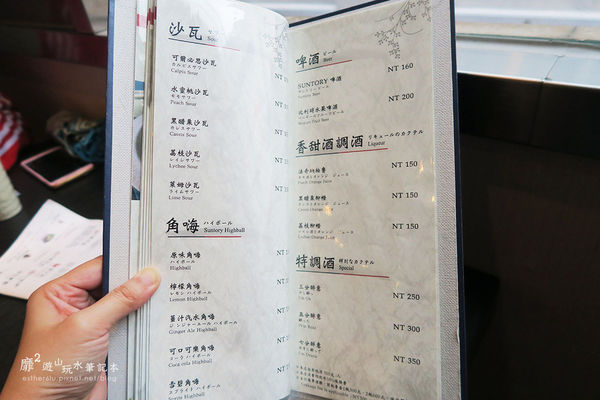 沙瓦
サワー
Sour
可爾必思沙瓦
カルピスサワー
Calpis Sour
水蜜桃沙瓦
モモサワー
Peach Sour
黑醋栗沙瓦
カシスサワー
Cassis Sour
荔枝沙瓦
レイシサワー
Lychee Sour
萊姆沙瓦
ライムサワー
Lime Sour
角嗨 ハイボール
Suntory Highball
原味角嗨
ハイボール
Highball
檸檬角嗨
レモン ハイボール
Lemon Highball
薑汁汽水角嗨
ジンジャーエール ハイボール
Ginger Ale Highball
可口可樂角嗨
コーラ ハイボール
Coca cola Highball
雪碧角嗨
スプライト ハイボール
Sprite Highball
啤酒 ビール
Beer
SUNTORY 啤酒 NT 160
サントリービール
Suntory Beer
比利時水果啤酒 NT 200
Belgium Fruit Beer
香甜酒調酒 リキュールのカクテル
Liqueur
法奇那柚香 NT 150
黑醋栗柳橙 NT 150
荔枝柳橙 NT 150
特調酒 特別なカクテル
Special
三分醉意 NT 250
五分醉意 NT 300
七分醉意 NT 350
靡²遊山玩水筆記本
estherslu.pixnet.net/blog